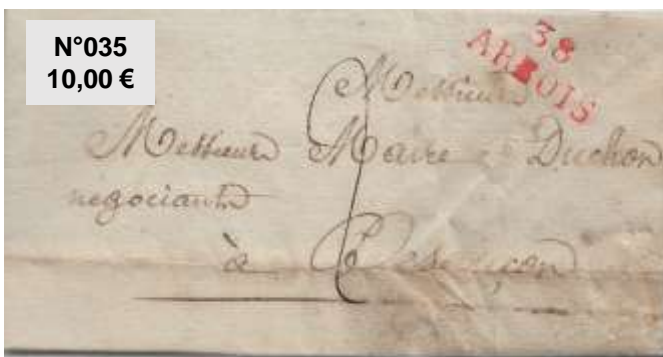 N°035
10,00 €
38
ARBOIS
Messieurs
Messieurs Maire et Duchon
negociants
à Besançon